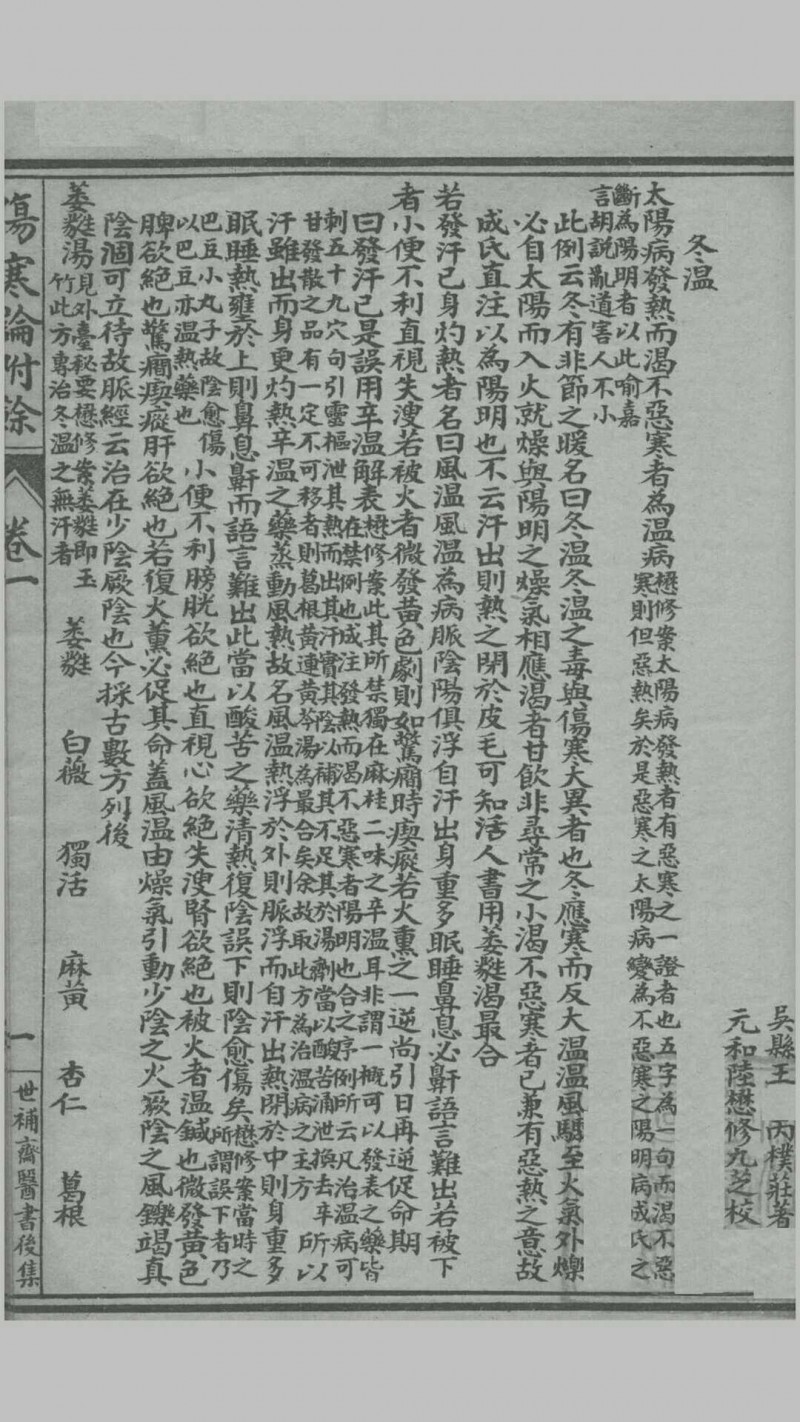 吳縣王 丙樸莊著
元和陸懋修九芝校
冬溫
太陽病發熱而渴不惡寒者為溫病懋修案太陽病發熱者有惡寒之一證者也五字為一句而渴不惡
寒則但惡熱矣於是惡寒之太陽病變為不惡寒之陽明病成氏之
斷為陽明者以此喻嘉
言胡說亂道害人不小
此例云冬有非節之暖名曰冬溫冬溫之毒與傷寒大異者也冬應寒而反大溫溫風驟至火氣外爍
必自太陽而入火就燥與陽明之燥氣相應渴者甘飲非尋常之小渴不惡寒者已兼有惡熱之意故
成氏直注以為陽明也不云汗出則熱之閉於皮毛可知活人書用萎蕤湯最合
若發汗已身灼熱者名曰風溫風溫為病脈陰陽俱浮自汗出身重多眠睡鼻息必鼾語言難出若被下
者小便不利直視失溲若被火者微發黃色劇則如驚癎時瘈瘲若火熏之一逆尚引日再逆促命期
曰發汗已是誤用辛溫解表懋修案此其所禁獨在麻桂二味之辛溫耳非謂一概可以發表之藥皆
在禁例也成注發熱而渴不惡寒者陽明也合之序例所云凡治溫病可
刺五十九穴句引靈樞泄其熱而出其汗實其陰以補其不足其於湯劑當以酸苦涌泄換去辛
甘發散之品有一定不可移者則葛根黃連黃芩湯為最合矣余故取此方為治溫病之主方
所以
汗雖出而身更灼熱辛溫之藥蒸動風熱故名風溫熱浮於外則脈浮而自汗出熱閉於中則身重多
眠睡熱壅於上則鼻息鼾而語言難出此當以酸苦之藥清熱復陰誤下則陰愈傷矣懋修案當時之
所謂誤下者乃
巴豆小丸子故陰愈傷
以巴豆亦溫熱藥也
小便不利膀胱欲絕也直視心欲絕失溲腎欲絕也被火者溫鍼也微發黃色
脾欲絕也驚癎瘈瘲肝欲絕也若復火薰必促其命蓋風溫由燥氣引動少陰之火厥陰之風鑠竭真
陰涸可立待故脈經云治在少陰厥陰也今採古數方列後
萎蕤湯見外臺秘要懋修案萎蕤即玉
竹此方專治冬溫之無汗者
萎蕤 白薇 獨活 麻黃 杏仁 葛根
傷寒論附餘 卷一 一 世補齋醫書後集